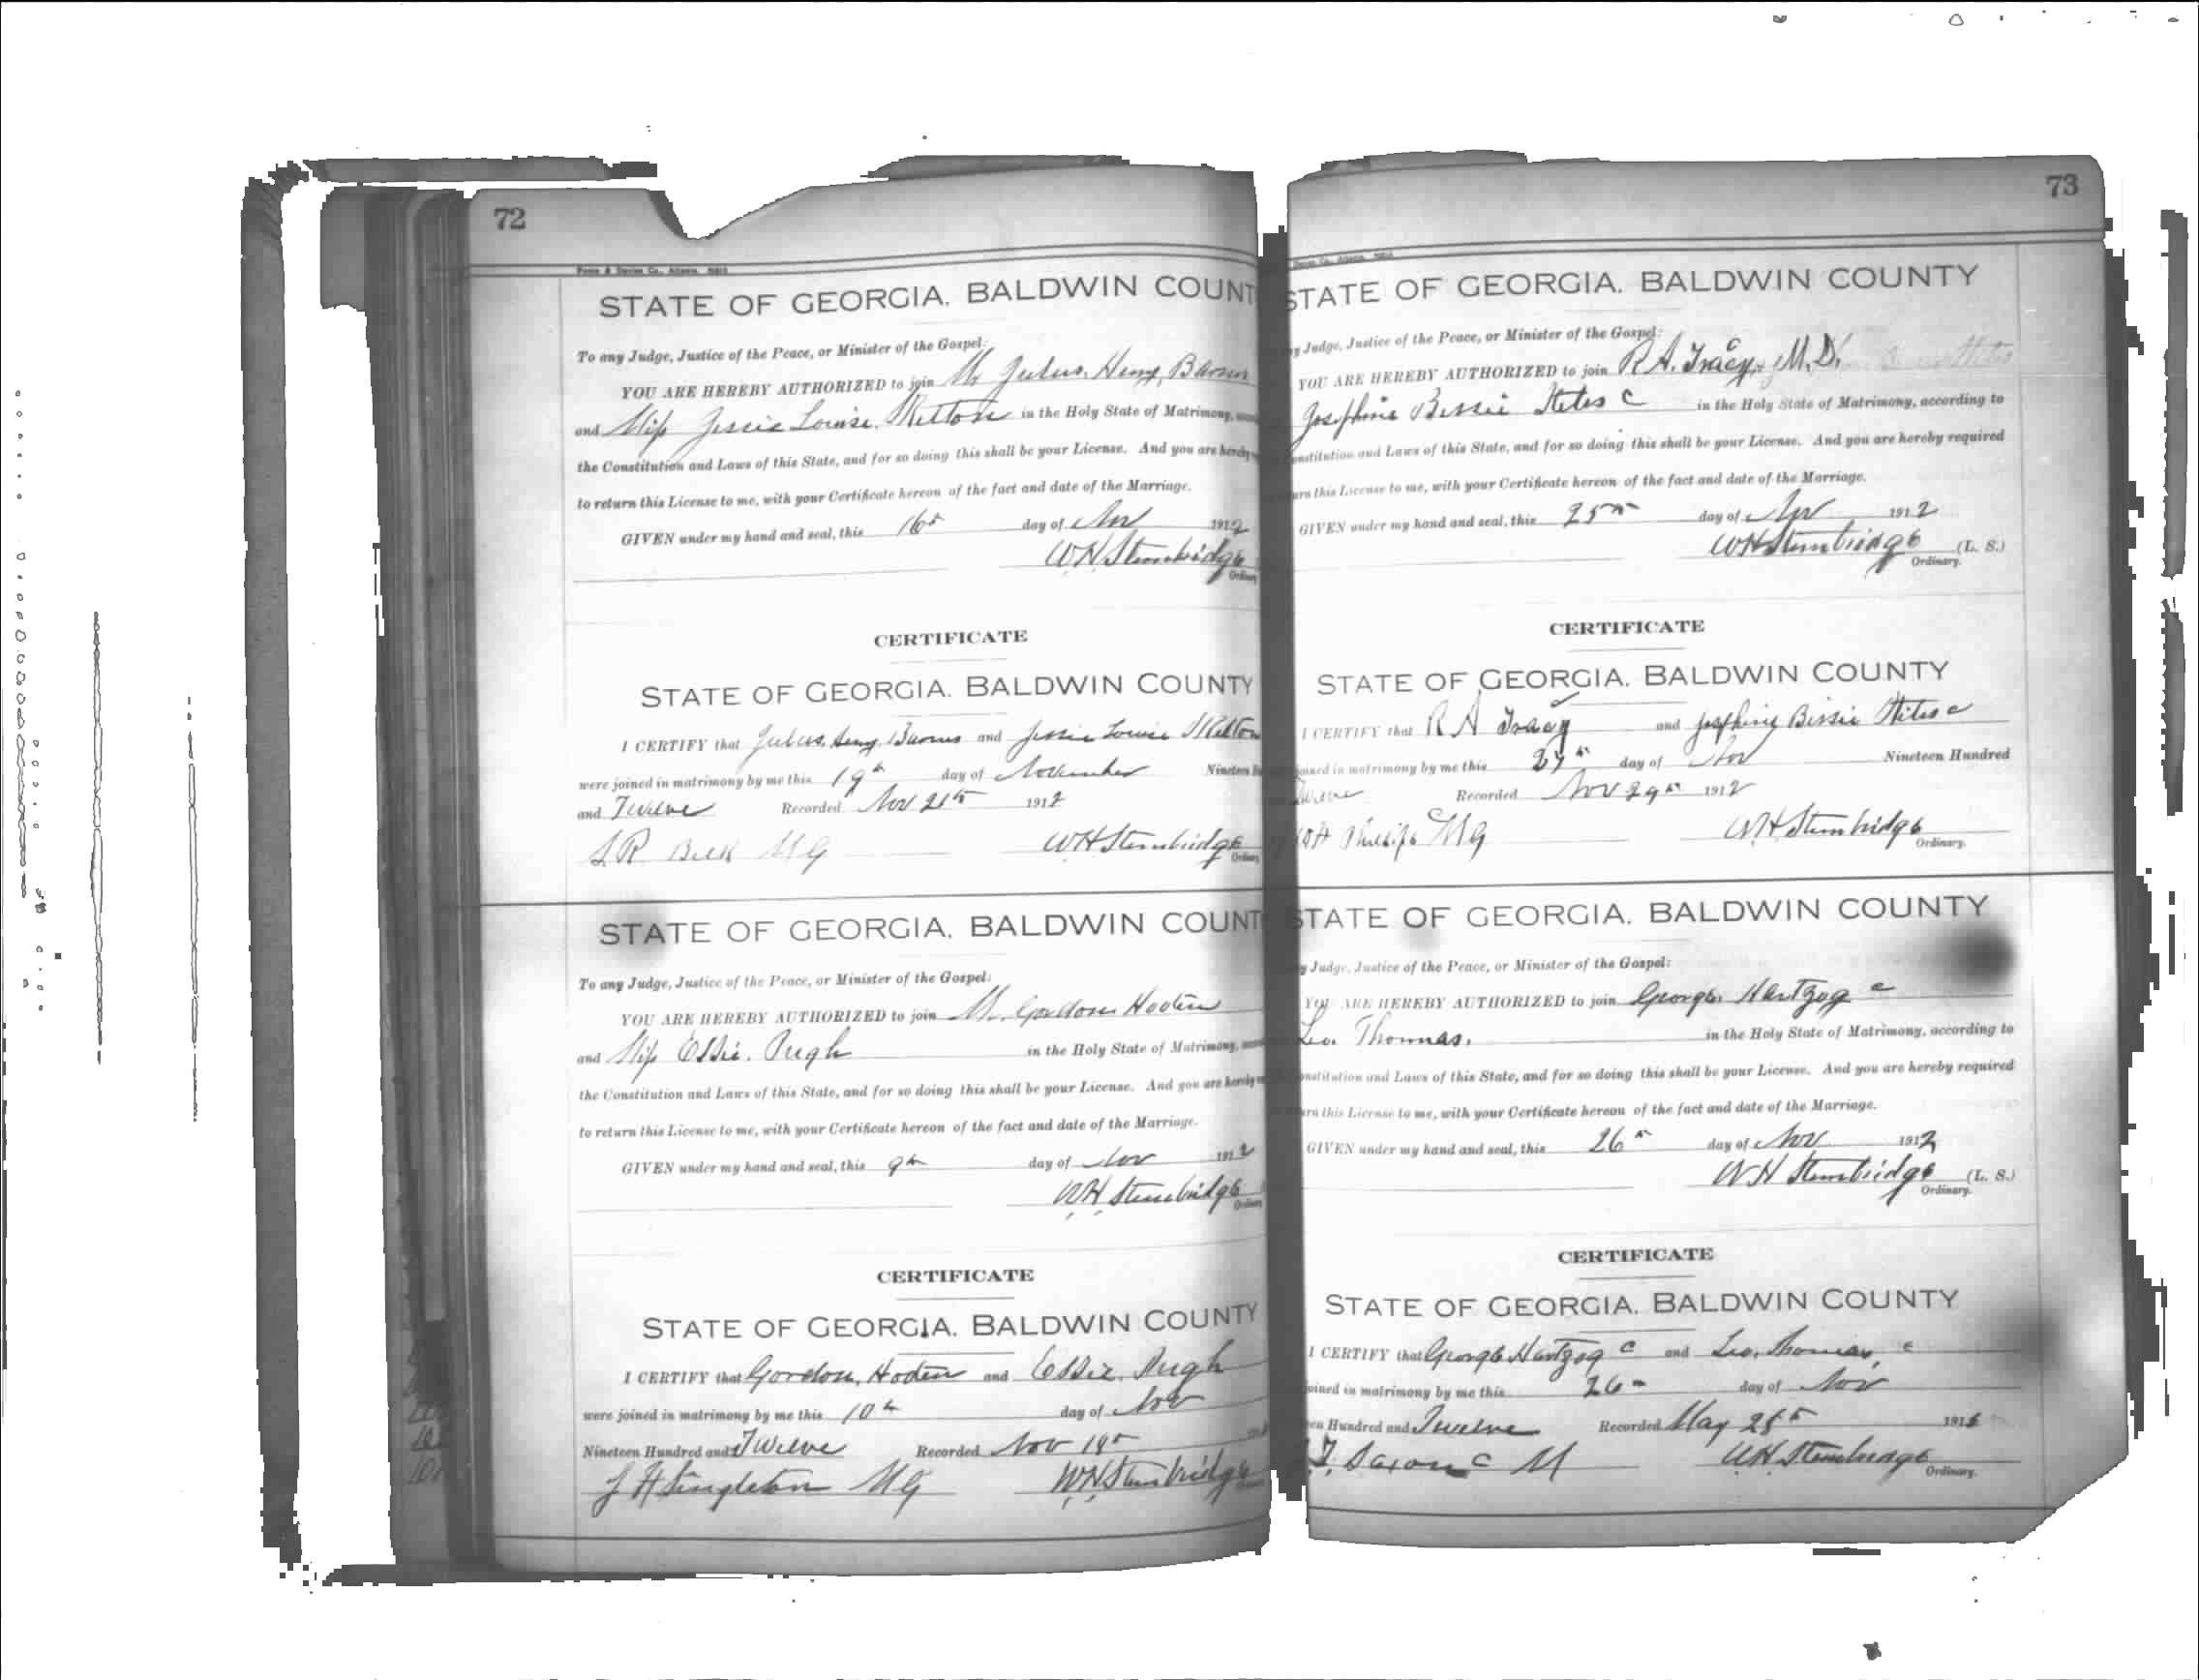 72
STATE OF GEORGIA. BALDWIN COUNT
To any Judge, Justice of the Peace, or Minister of the Gospel:
YOU ARE HEREBY AUTHORIZED to join Mr Julius. Henry, Barnes
and Miss Jessie Louise, Skelton in the Holy State of Matrimony,
the Constitution and Laws of this State, and for so doing this shall be your License. And you are hereby
to return this License to me, with your Certificate hereon of the fact and date of the Marriage.
GIVEN under my hand and seal, this 16th day of Nov 1912
W.H. Stembridge
Ordinary
CERTIFICATE
STATE OF GEORGIA. BALDWIN COUNTY
I CERTIFY that Julius, Henry, Barnes and Jessie Louise Skelton
were joined in matrimony by me this 19th day of November Nineteen
and Twelve Recorded Nov 21st 1912
S R Belk MG WH Stembridge
Ordinary
STATE OF GEORGIA. BALDWIN COUNT
To any Judge, Justice of the Peace, or Minister of the Gospel:
YOU ARE HEREBY AUTHORIZED to join Mr. Gordon Hooten
and Miss Essie. Pugh in the Holy State of Matrimony,
the Constitution and Laws of this State, and for so doing this shall be your License. And you are hereby
to return this License to me, with your Certificate hereon of the fact and date of the Marriage.
GIVEN under my hand and seal, this 9th day of Nov 1912
W.H. Stembridge
Ordinary
CERTIFICATE
STATE OF GEORGIA. BALDWIN COUNTY
I CERTIFY that Gordon, Hoten and Essie. Pugh
were joined in matrimony by me this 10th day of Nov
Nineteen Hundred and Twelve Recorded Nov 18th
J H Singleton MG W.H. Stembridge
73
STATE OF GEORGIA. BALDWIN COUNTY
y Judge, Justice of the Peace, or Minister of the Gospel:
YOU ARE HEREBY AUTHORIZED to join R A. Tracy, c M.D.
Josephine Bessie Stites C in the Holy State of Matrimony, according to
onstitution and Laws of this State, and for so doing this shall be your License. And you are hereby required
urn this License to me, with your Certificate hereon of the fact and date of the Marriage.
GIVEN under my hand and seal, this 25th day of Nov 1912
WH Stembridge (L. S.)
Ordinary.
CERTIFICATE
STATE OF GEORGIA. BALDWIN COUNTY
I CERTIFY that R A Tracy and Josephine Bessie Stites c
oined in matrimony by me this 27th day of Nov Nineteen Hundred
Twelve Recorded Nov 29th 1912
Phillips MG W.H Stembridge
Ordinary.
STATE OF GEORGIA. BALDWIN COUNTY
y Judge, Justice of the Peace, or Minister of the Gospel:
YOU ARE HEREBY AUTHORIZED to join George Hartzog c
Leo. Thomas. in the Holy State of Matrimony, according to
onstitution and Laws of this State, and for so doing this shall be your License. And you are hereby required
urn this License to me, with your Certificate hereon of the fact and date of the Marriage.
GIVEN under my hand and seal, this 26th day of Nov 1912
W H Stembridge (L. S.)
Ordinary.
CERTIFICATE
STATE OF GEORGIA. BALDWIN COUNTY
I CERTIFY that George Hartzog c and Leo, Thomas, c
oined in matrimony by me this 26th day of Nov
en Hundred and Twelve Recorded May
Saxon c M W.H. Stembridge
Ordinary.